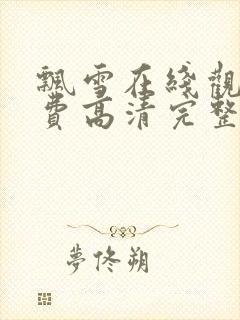 飄雪在綫觀
費高清完整
夢佟朔